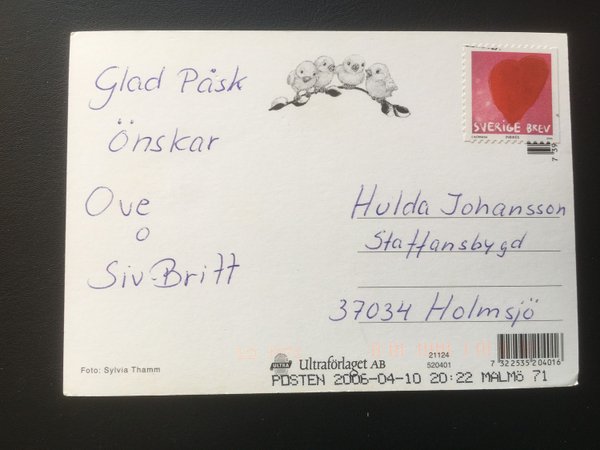 Glad Påsk
Önskar
Ove
o
Siv-Britt
SVERIGE BREV
7 39
Hulda Johansson
Staffansbygd
37034 Holmsjö
Foto: Sylvia Thamm
ULTRA
Ultraförlaget AB
21124
520401
7 322535 204016
POSTEN 2006-04-10 20:22 MALMÖ 71